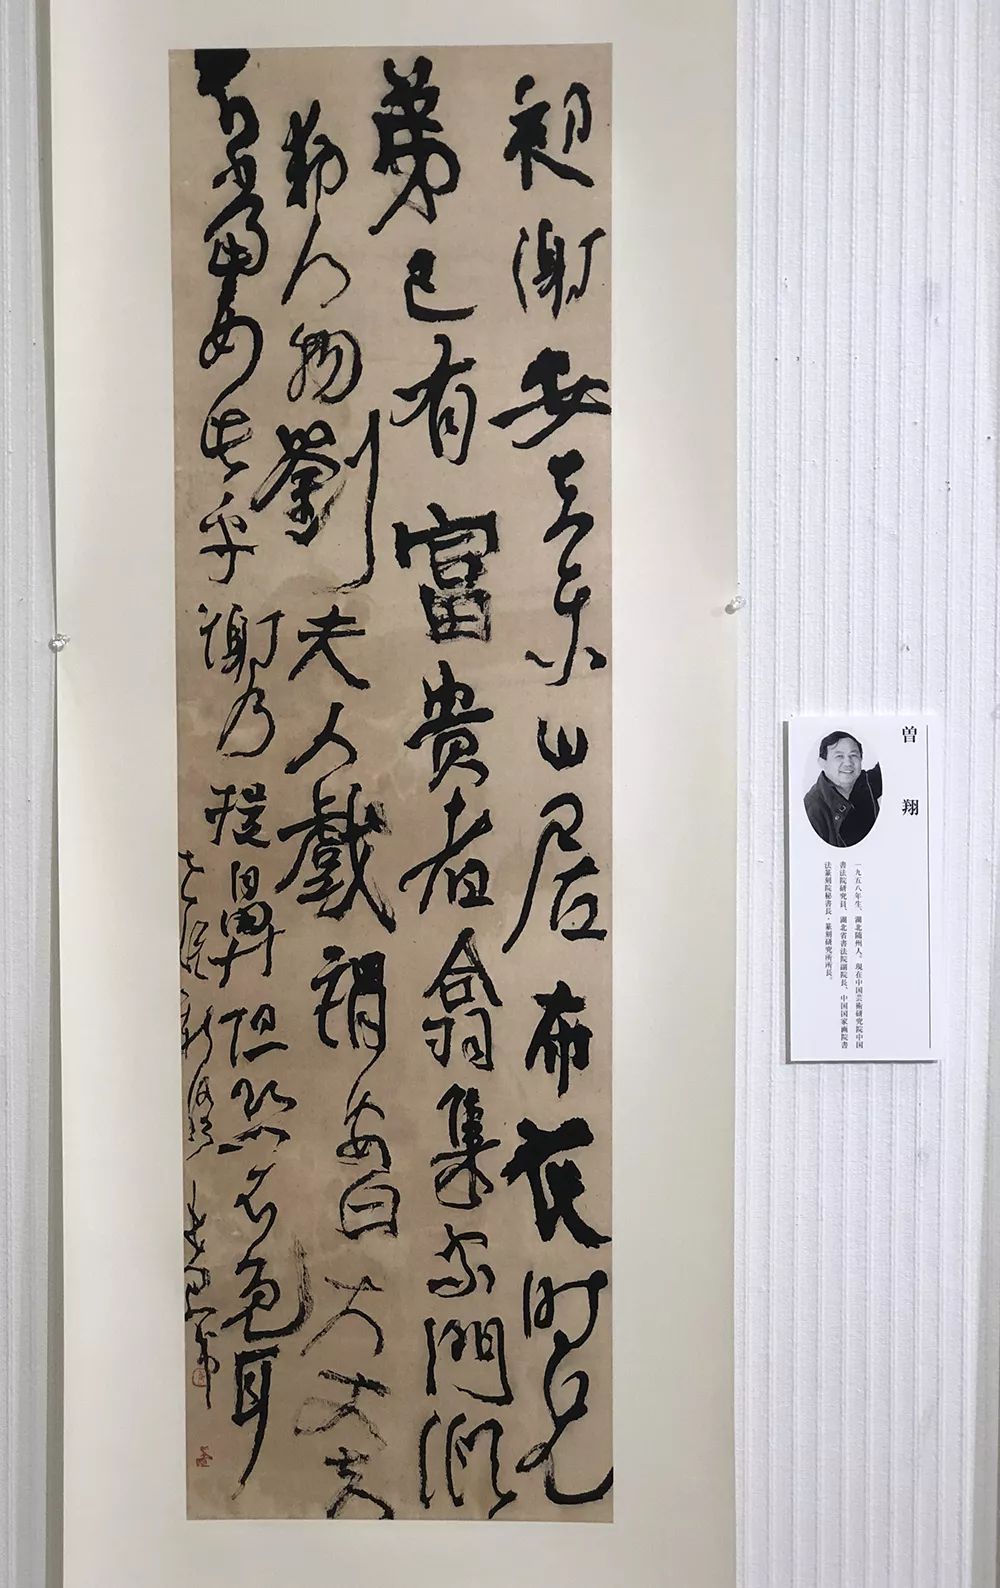 初謝安在東山居布衣時兄
弟已有富貴者翕集家門傾
動人物劉夫人戲謂安曰大丈夫
不當如此乎謝乃捉鼻但恐不免耳
世說新語
曽 翔
一九五八年生、湖北随州人。現在中国芸術研究院中国
書法院研究員、湖北省書法院副院長、中国国家画院書
法篆刻院秘書長・篆刻研究所所長。